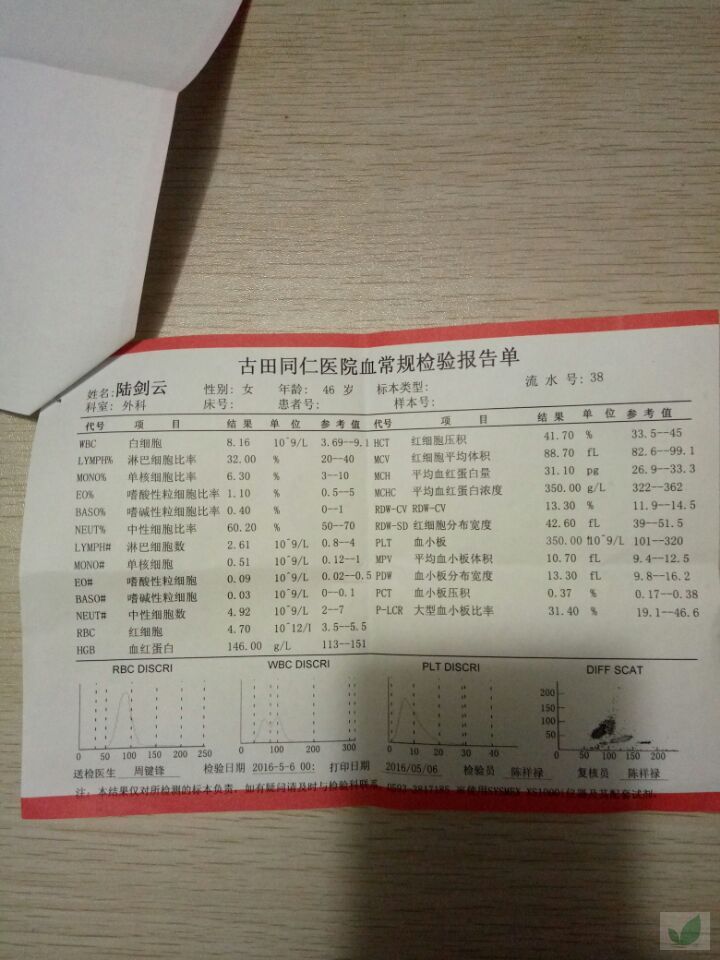 古田同仁医院血常规检验报告单
姓名:陆剑云 性别: 女 年龄: 46 岁 标本类型: 流 水 号: 38
科室: 外科 床号: 患者号: 样本号:
代号 项 目 结 果 单 位 参 考 值 代号 项 目 结 果 单 位 参 考 值
WBC 白细胞 8.16 10^9/L 3.69--9.1 HCT 红细胞压积 41.70 % 33.5--45
LYMPH% 淋巴细胞比率 32.00 % 20--40 MCV 红细胞平均体积 88.70 fL 82.6--99.1
MONO% 单核细胞比率 6.30 % 3--10 MCH 平均血红蛋白量 31.10 pg 26.9--33.3
EO% 嗜酸性粒细胞比率 1.10 % 0.5--5 MCHC 平均血红蛋白浓度 350.00 g/L 322--362
BASO% 嗜碱性粒细胞比率 0.40 % 0--1 RDW-CV RDW-CV 13.30 % 11.9--14.5
NEUT% 中性细胞比率 60.20 % 50--70 RDW-SD 红细胞分布宽度 42.60 fL 39--51.5
LYMPH# 淋巴细胞数 2.61 10^9/L 0.8--4 PLT 血小板 350.00 ↑10^9/L 101--320
MONO# 单核细胞 0.51 10^9/L 0.12--1 MPV 平均血小板体积 10.70 fL 9.4--12.5
EO# 嗜酸性粒细胞 0.09 10^9/L 0.02--0.5 PDW 血小板分布宽度 13.30 fL 9.8--16.2
BASO# 嗜碱性粒细胞 0.03 10^9/L 0--0.1 PCT 血小板压积 0.37 % 0.17--0.38
NEUT# 中性细胞数 4.92 10^9/L 2--7 P-LCR 大型血小板比率 31.40 % 19.1--46.6
RBC 红细胞 4.70 10^12/l 3.5--5.5
HGB 血红蛋白 146.00 g/L 113--151
RBC DISCRI WBC DISCRI PLT DISCRI DIFF SCAT
200
150
100
50
0 50 100 150 200 250 0 100 200 300 0 10 20 30 40 0 50 100 150 200
送检医生 周键锋 检验日期 2016-5-6 00: 打印日期 2016/05/06 检验员 陈祥禄 复核员 陈祥禄
注: 本结果仅对所检测的标本负责, 如有疑问请及时与检验科联系